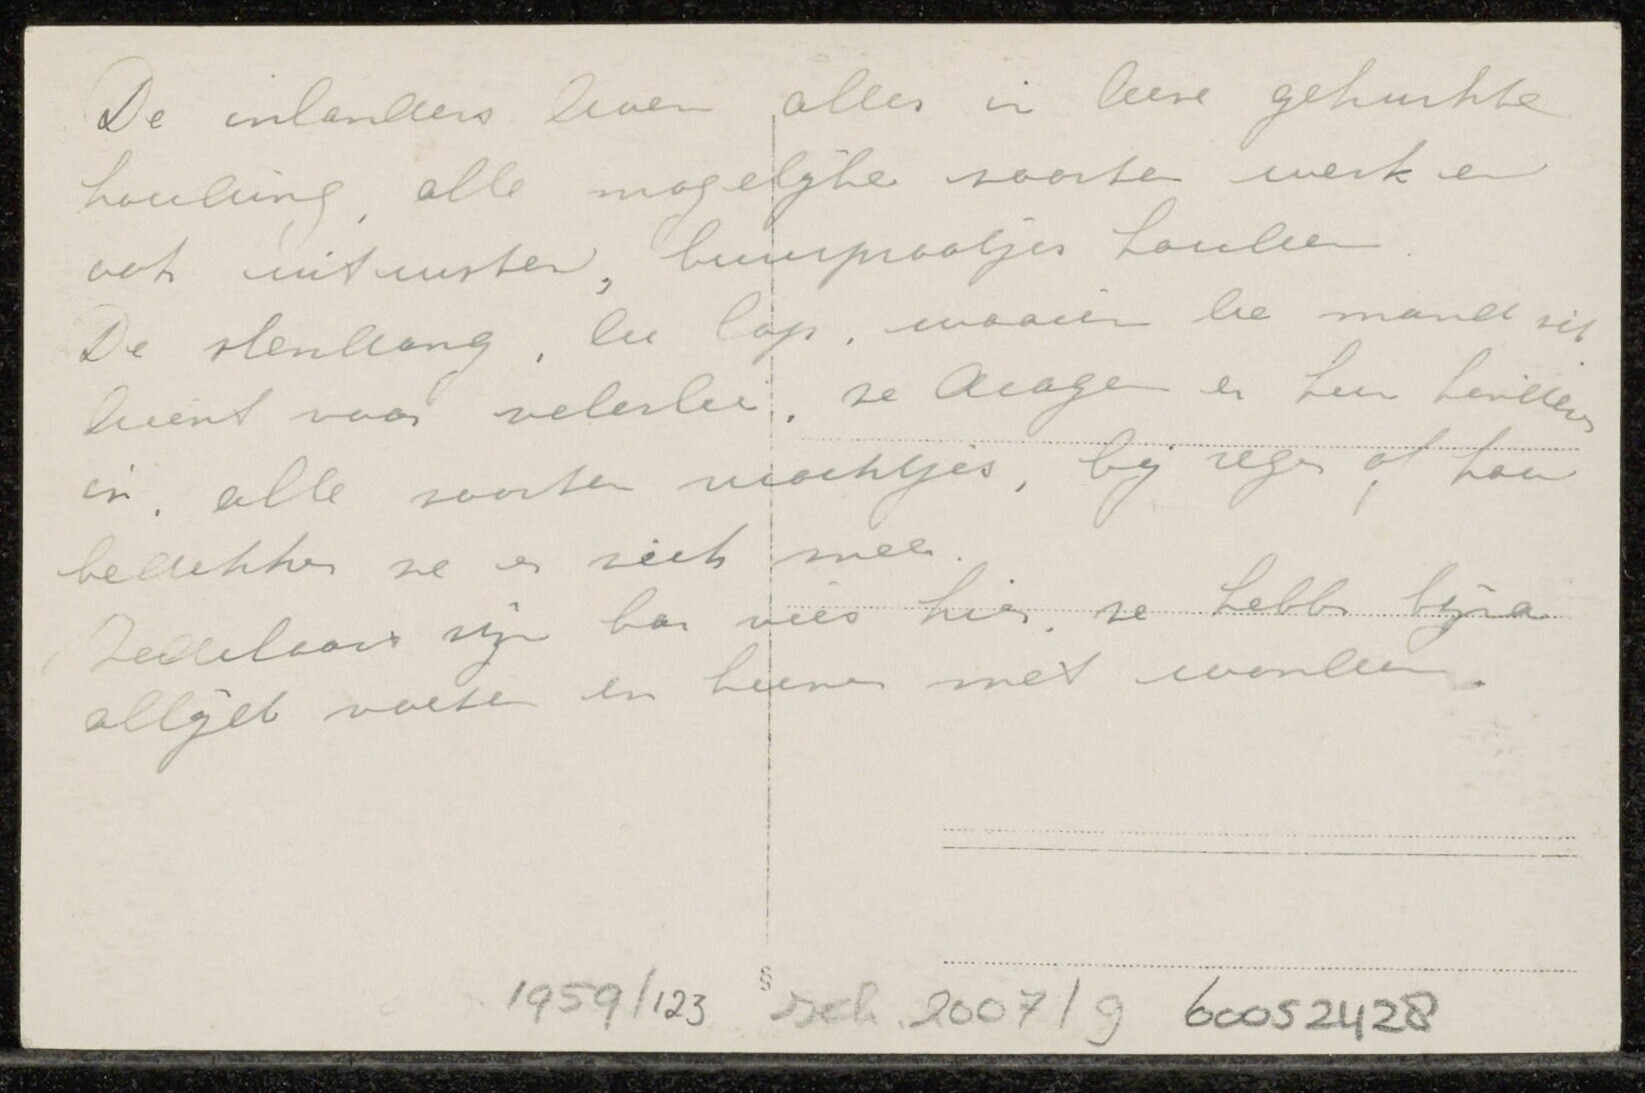 De inlanders doen alles in deze gehurkte
houding, alle mogelijke soorten werk en
ook uitrusten, buurpraatjes houden.
De slendang, de lap, waarin de mand zit
dient voor velerlei, ze dragen er hun kinderen
in, alle soorten vrachtjes, bij regen of kou
bedekken ze er zich mee.
Bedelaars zijn bar vies hier, ze hebben bijna
altijd voeten en beenen met wonden.
1959/123 S sch. 2007/9 60052428